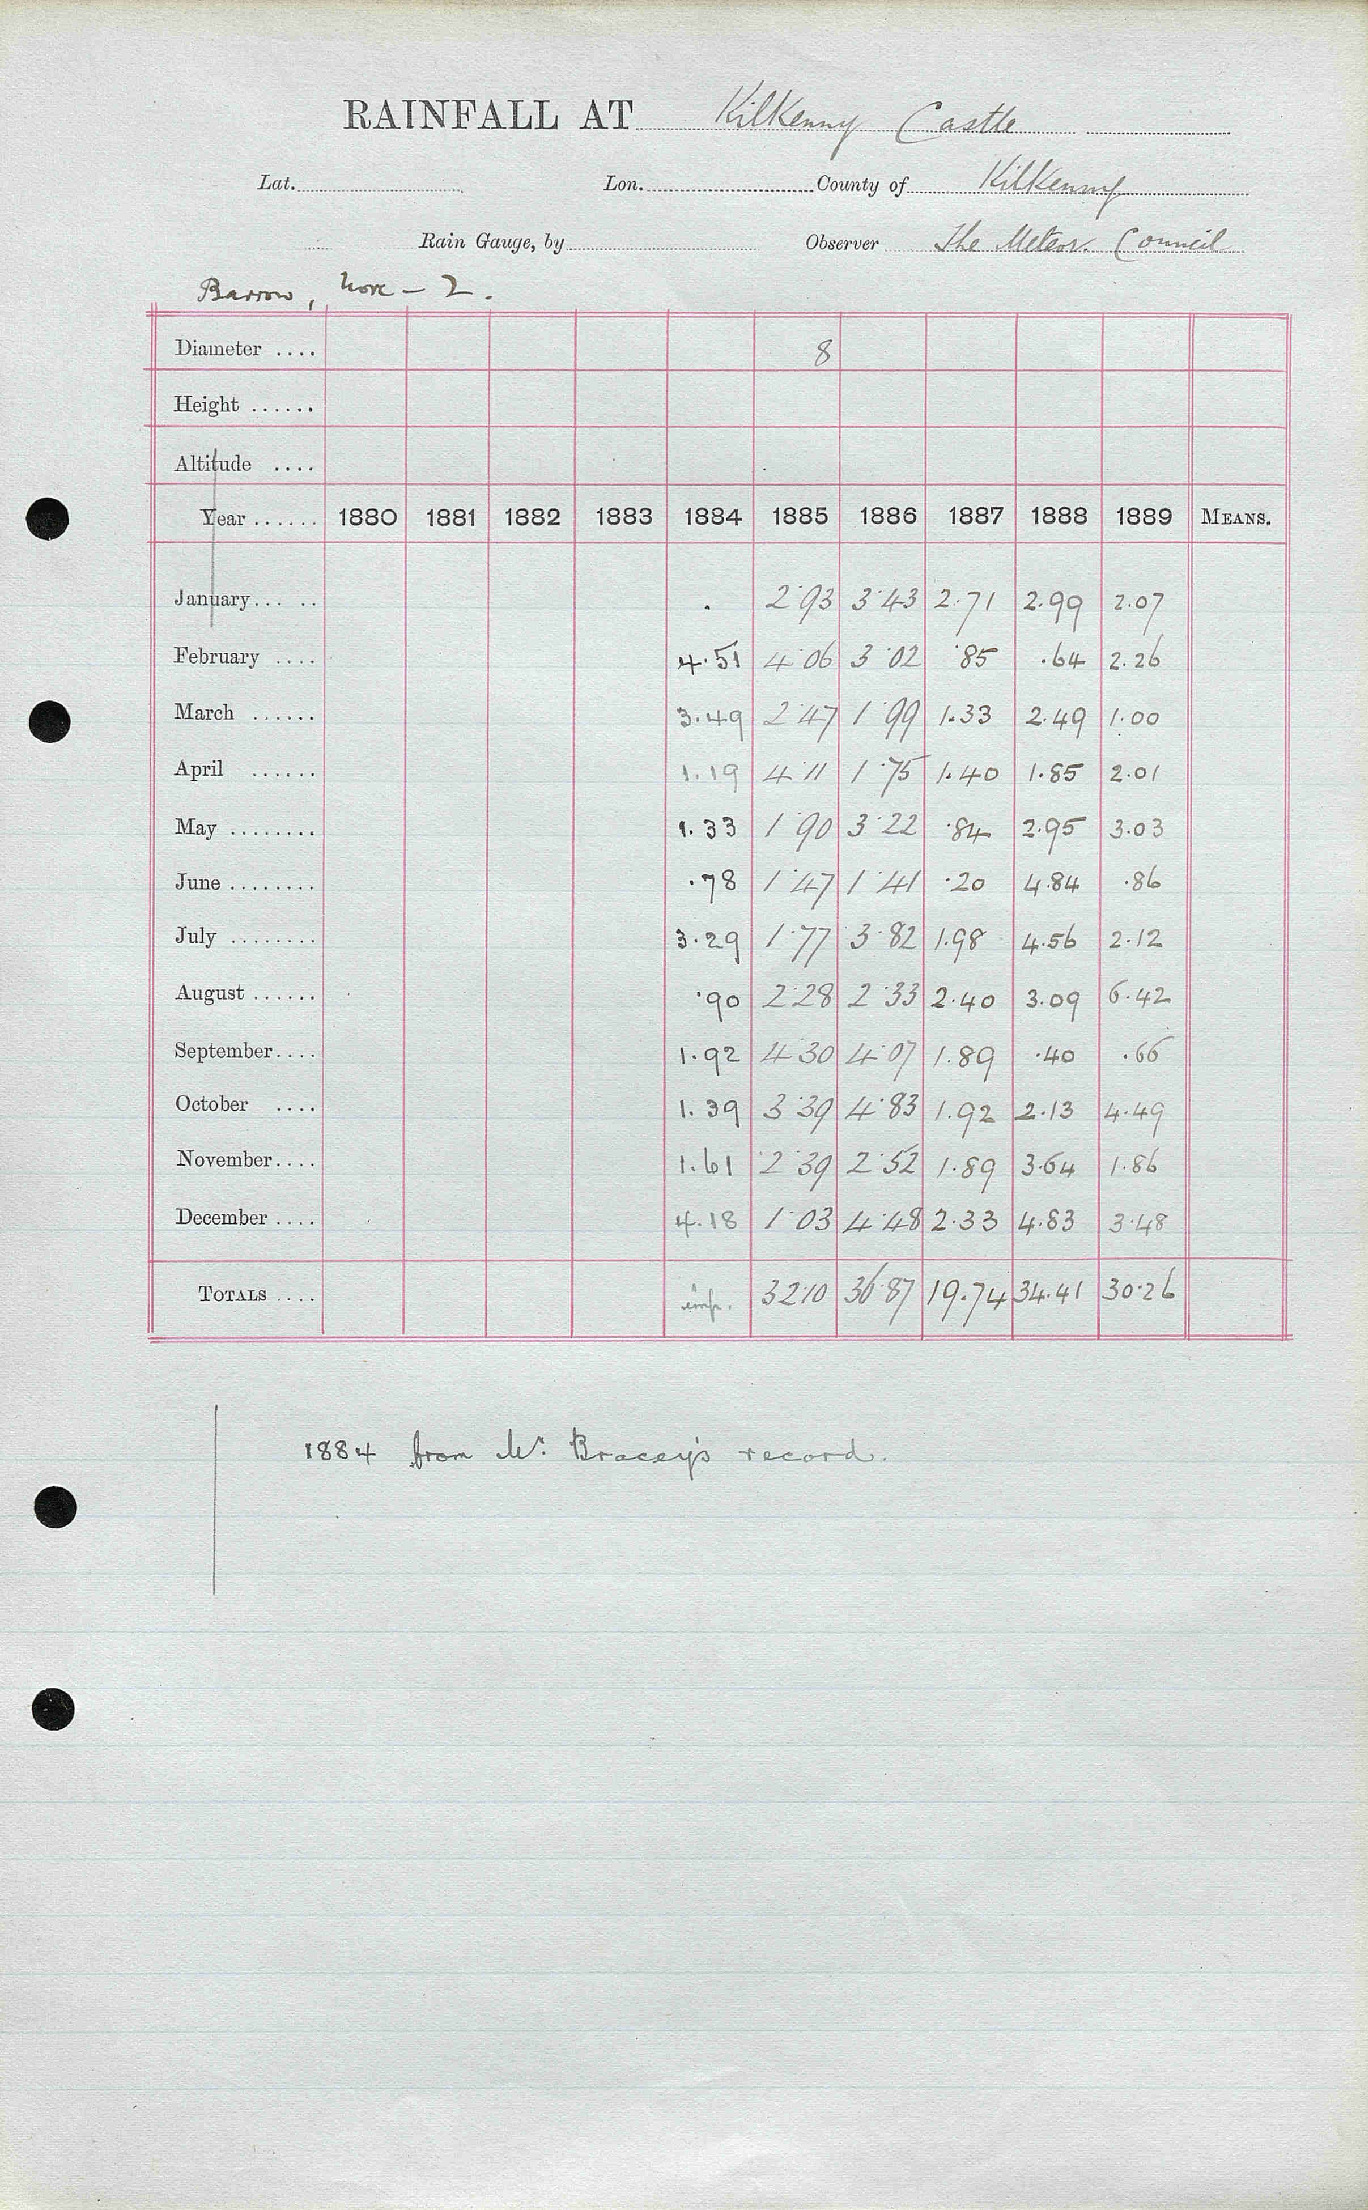 RAINFALL AT Kilkenny Castle
Lat. Lon. County of Kilkenny
Rain Gauge, by Observer The Meteor. Council
Barrow, Nore - 2.
Diameter .... 8
Height ......
Altitude ....
Year ...... 1880 1881 1882 1883 1884 1885 1886 1887 1888 1889 MEANS.
January... .. . 2.93 3.43 2.71 2.99 2.07
February .... 4.51 4.06 3.02 .85 .64 2.26
March ...... 3.49 2.47 1.99 1.33 2.49 1.00
April ...... 1.19 4.11 1.75 1.40 1.85 2.01
May ........ 1.33 1.90 3.22 .84 2.95 3.03
June ........ .78 1.47 1.41 .20 4.84 .86
July ........ 3.29 1.77 3.82 1.98 4.56 2.12
August ...... .90 2.28 2.33 2.40 3.09 6.42
September.... 1.92 4.30 4.07 1.89 .40 .66
October .... 1.39 3.39 4.83 1.92 2.13 4.49
November.... 1.61 2.39 2.52 1.89 3.64 1.86
December .... 4.18 1.03 4.48 2.33 4.83 3.48
TOTALS .... imp. 32.10 36.87 19.74 34.41 30.26
1884 from Mr. Bracey's record.